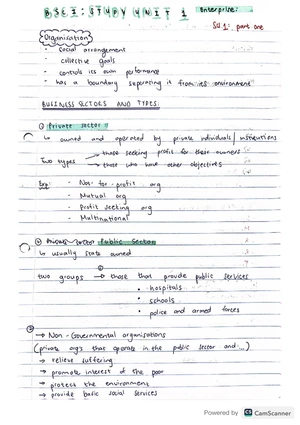 BSEI: STUDY UNIT 1 Enterprise:
SU 1: part one
Organisation
- social arrangement
- collective goals
- controls its own performance
- has a boundary separating it from its environment
BUSINESS SECTORS AND TYPES:
① Private sector
↳ owned and operated by private individuals / institutions
Two types → those seeking profit for their owners
→ those who have other objectives
Exp: - Not-for-profit org
- Mutual org
- Profit seeking org
- Multinational
Private sector Public Sector
↳ usually state owned
two groups → ① those that provide public services
• hospitals
• schools
• police and armed forces
② → Non-Governmental organisations
(private orgs that operate in the public sector and...)
→ relieve suffering
→ promote interest of the poor
→ protect the environment
→ provide basic social services
Powered by CS CamScanner